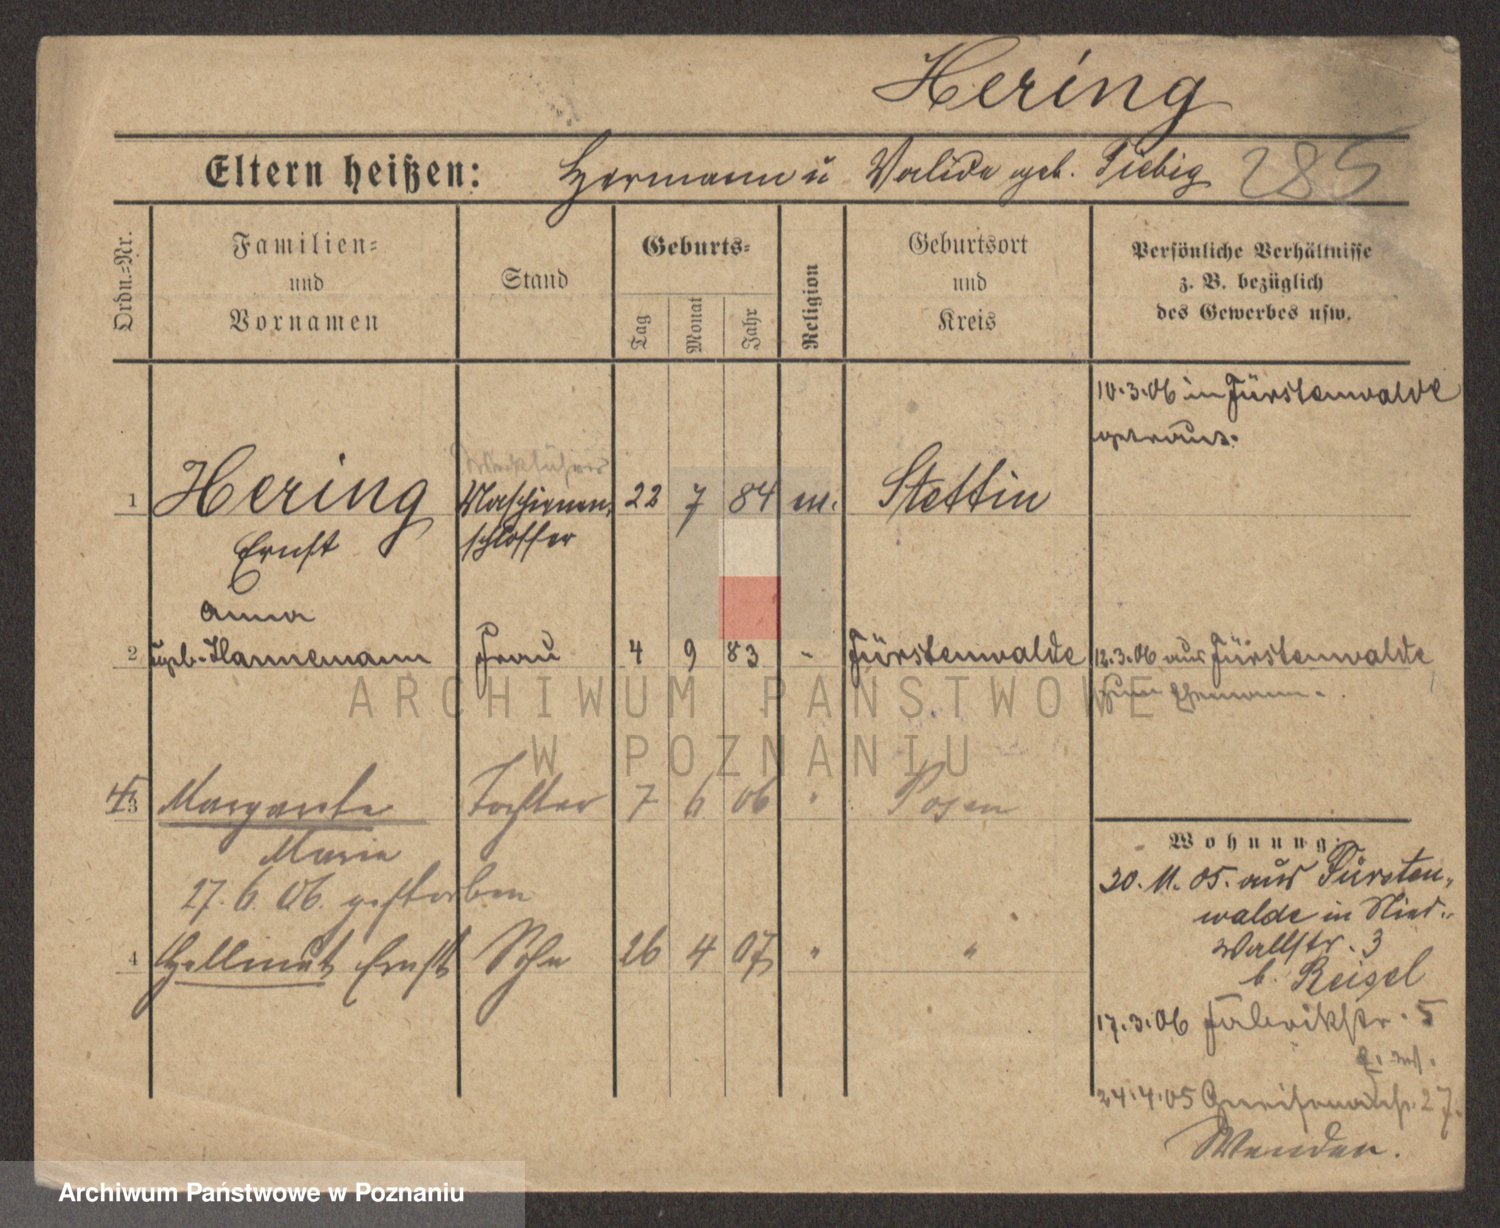 Hering
Eltern heißen: Hermann u Valida geb. Fiebig 285
Ordn.=Nr.
Familien=
und
Vornamen
Stand
Geburts=
Tag
Monat
Jahr
Religion
Geburtsort
und
Kreis
Persönliche Verhältnisse
z. B. bezüglich
des Gewerbes usw.
10.3.06 in Fürstenwalde
getraut.
Werkführer
1 Hering Maschienen- 22 7 84 m. Stettin
Ernst schlosser
Anna
2 geb. Hannemann Frau 4 9 83 - Fürstenwalde 12.3.06 aus Fürstenwalde
zum Ehemann.
3 Margarete Tochter 7 6 06 " Posen
Marie
27.6.06. gestorben
4 Hellmut Ernst Sohn 26 4 07 " "
Wohnung:
30.11.05. aus Fürsten-
walde in Nied.
Wallstr. 3
b. Reigel
17.3.06 Fabrikstr. 5
24.4.05 27.
Wenden.
ARCHIWUM PAŃSTWOWE
W POZNANIU
Archiwum Państwowe w Poznaniu